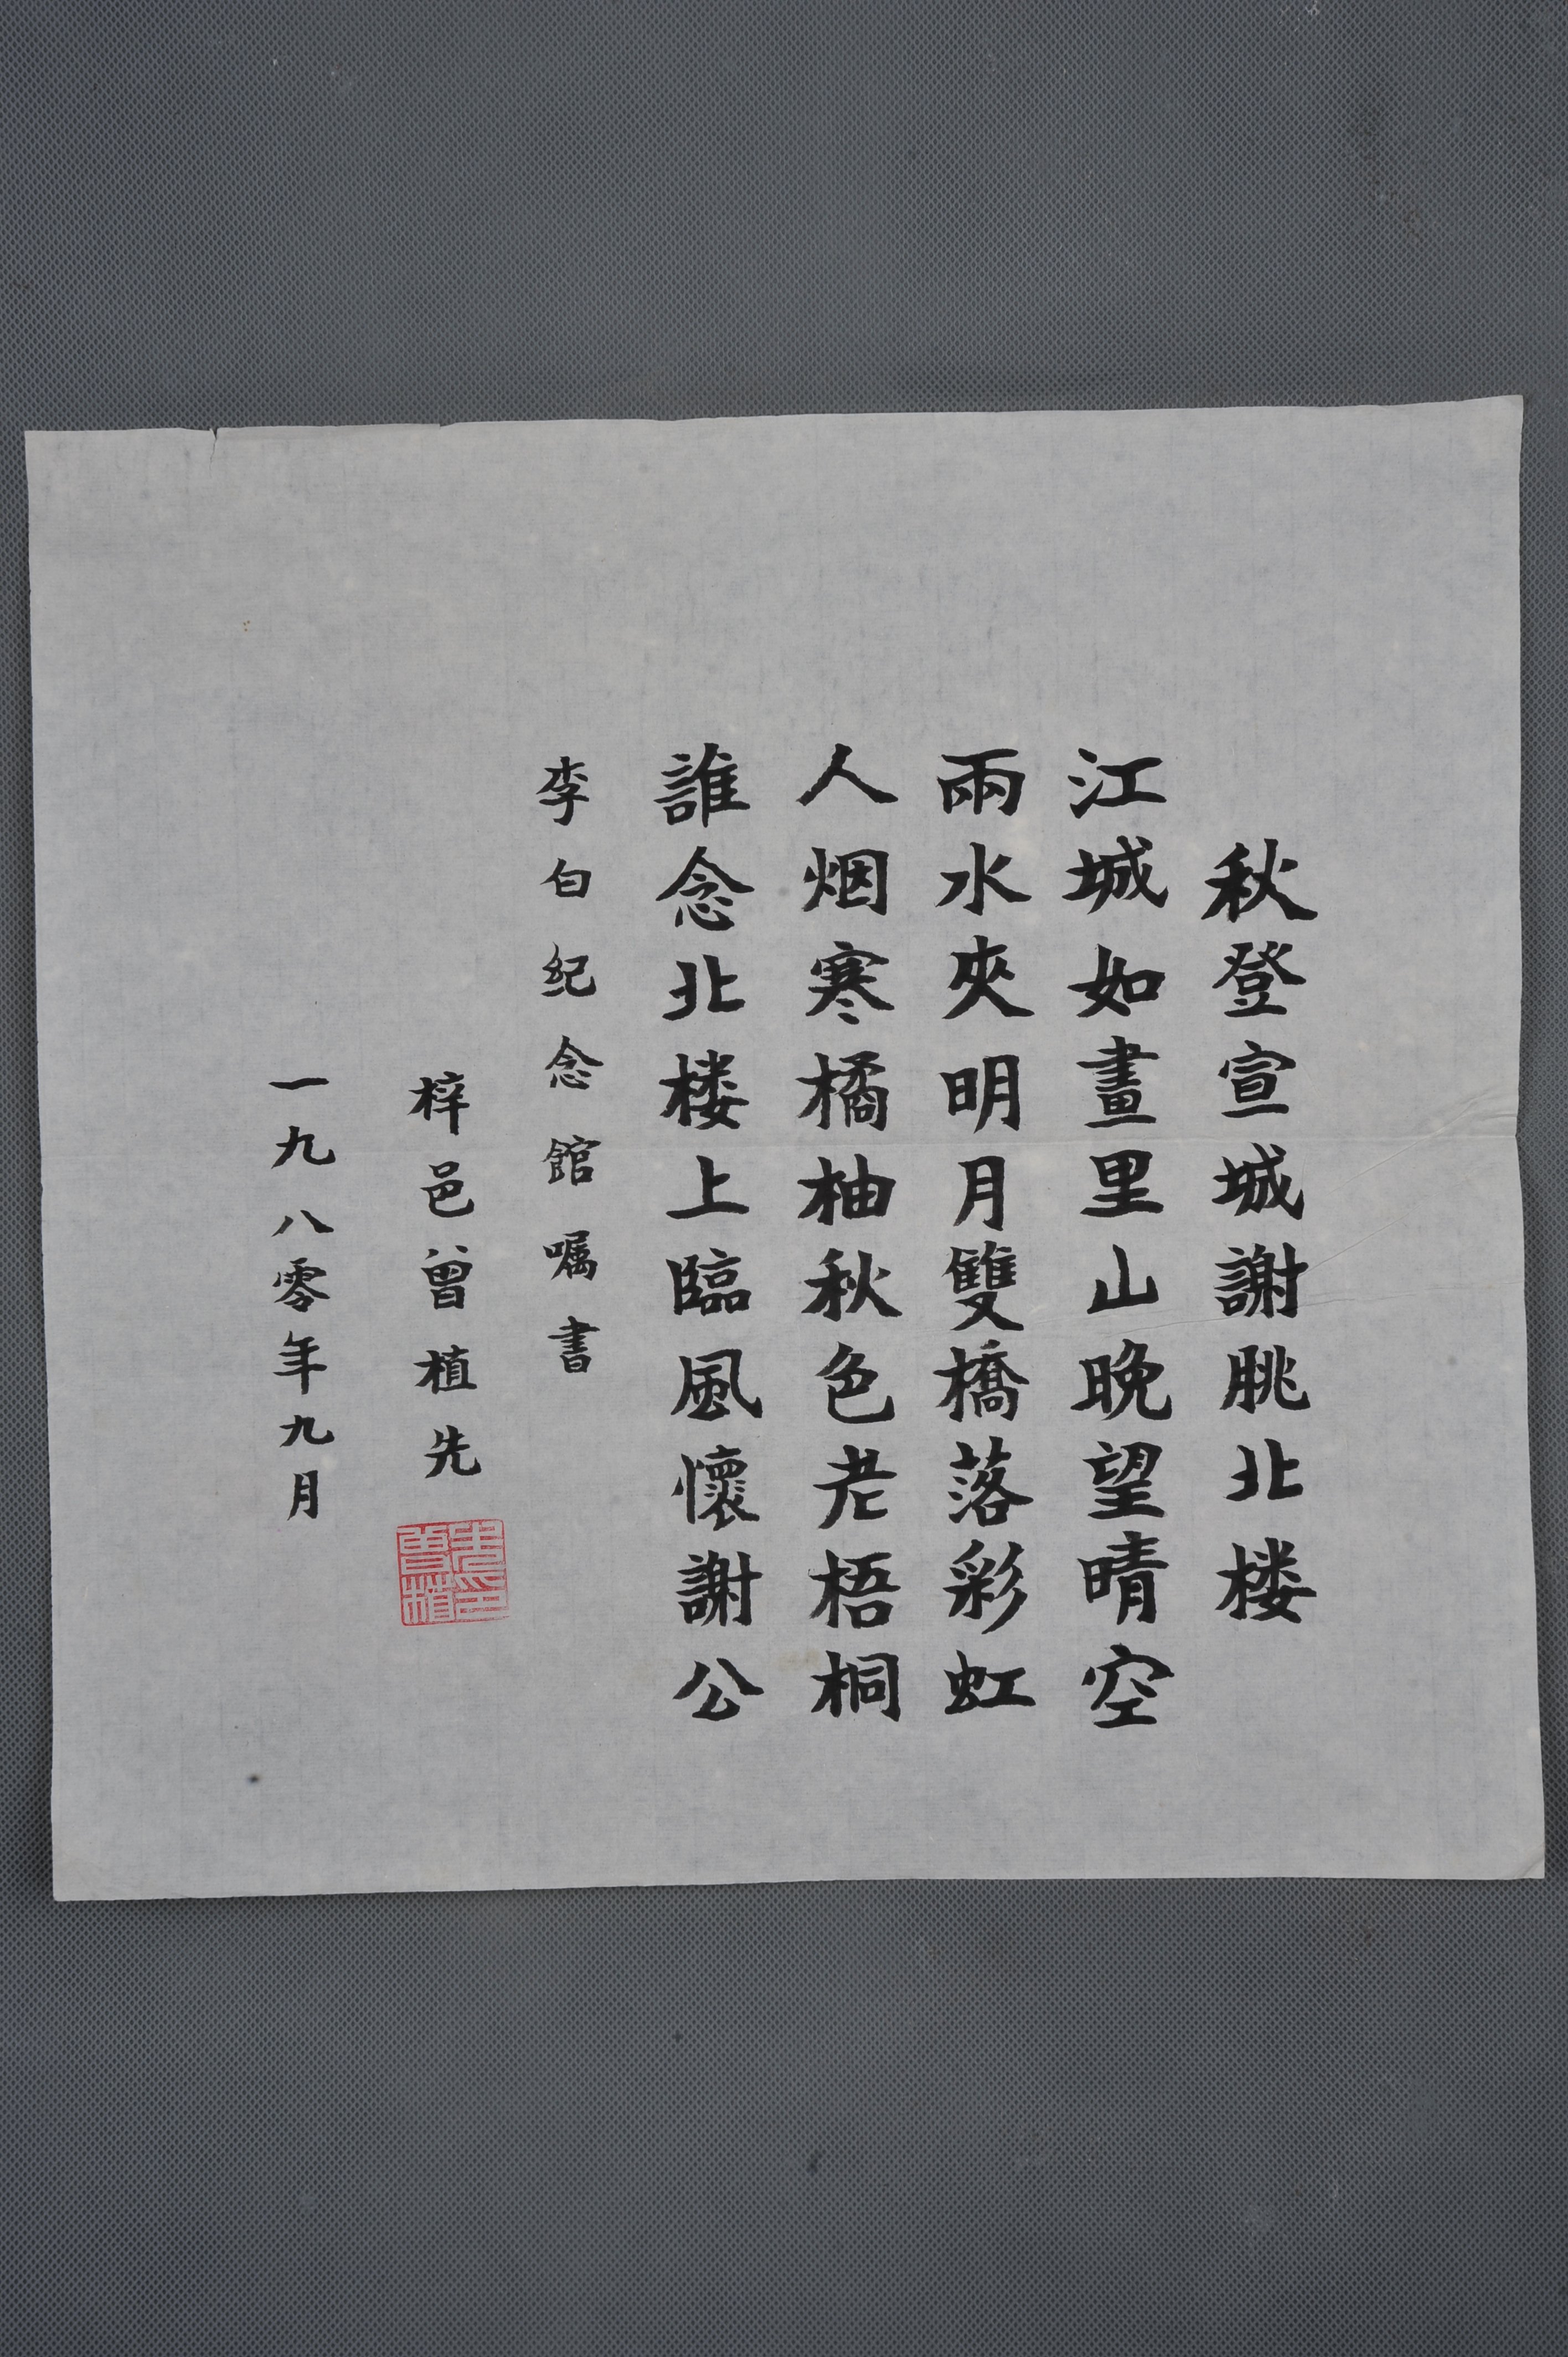 秋登宣城謝朓北楼
江城如畫里山晚望晴空
兩水夾明月雙橋落彩虹
人烟寒橘柚秋色老梧桐
誰念北楼上臨風懷謝公
李白纪念館嘱書
梓邑曾植先
一九八零年九月